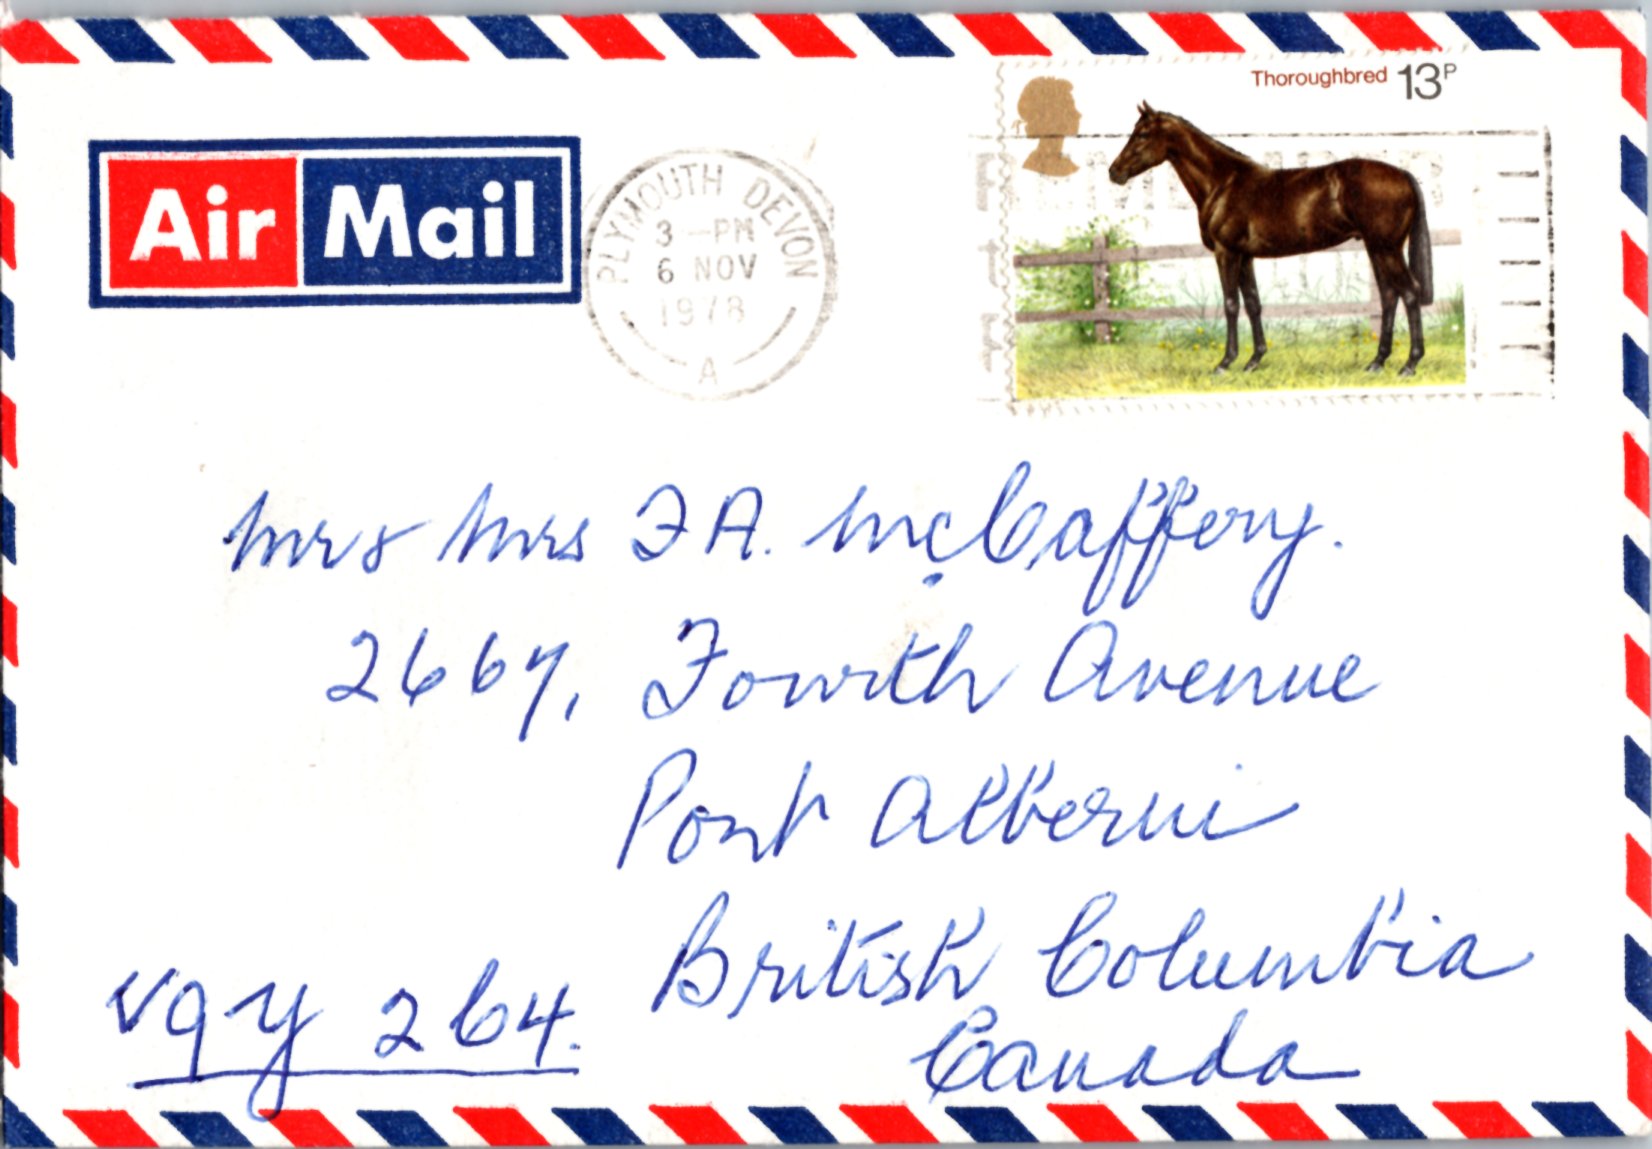 Thoroughbred 13P
Air Mail
PLYMOUTH DEVON
3-PM
6 NOV
1978
A
Mr & Mrs F A. McCaffery.
2667, Fourth Avenue
Port Alberni
British Columbia
V9Y 2C4.
Canada